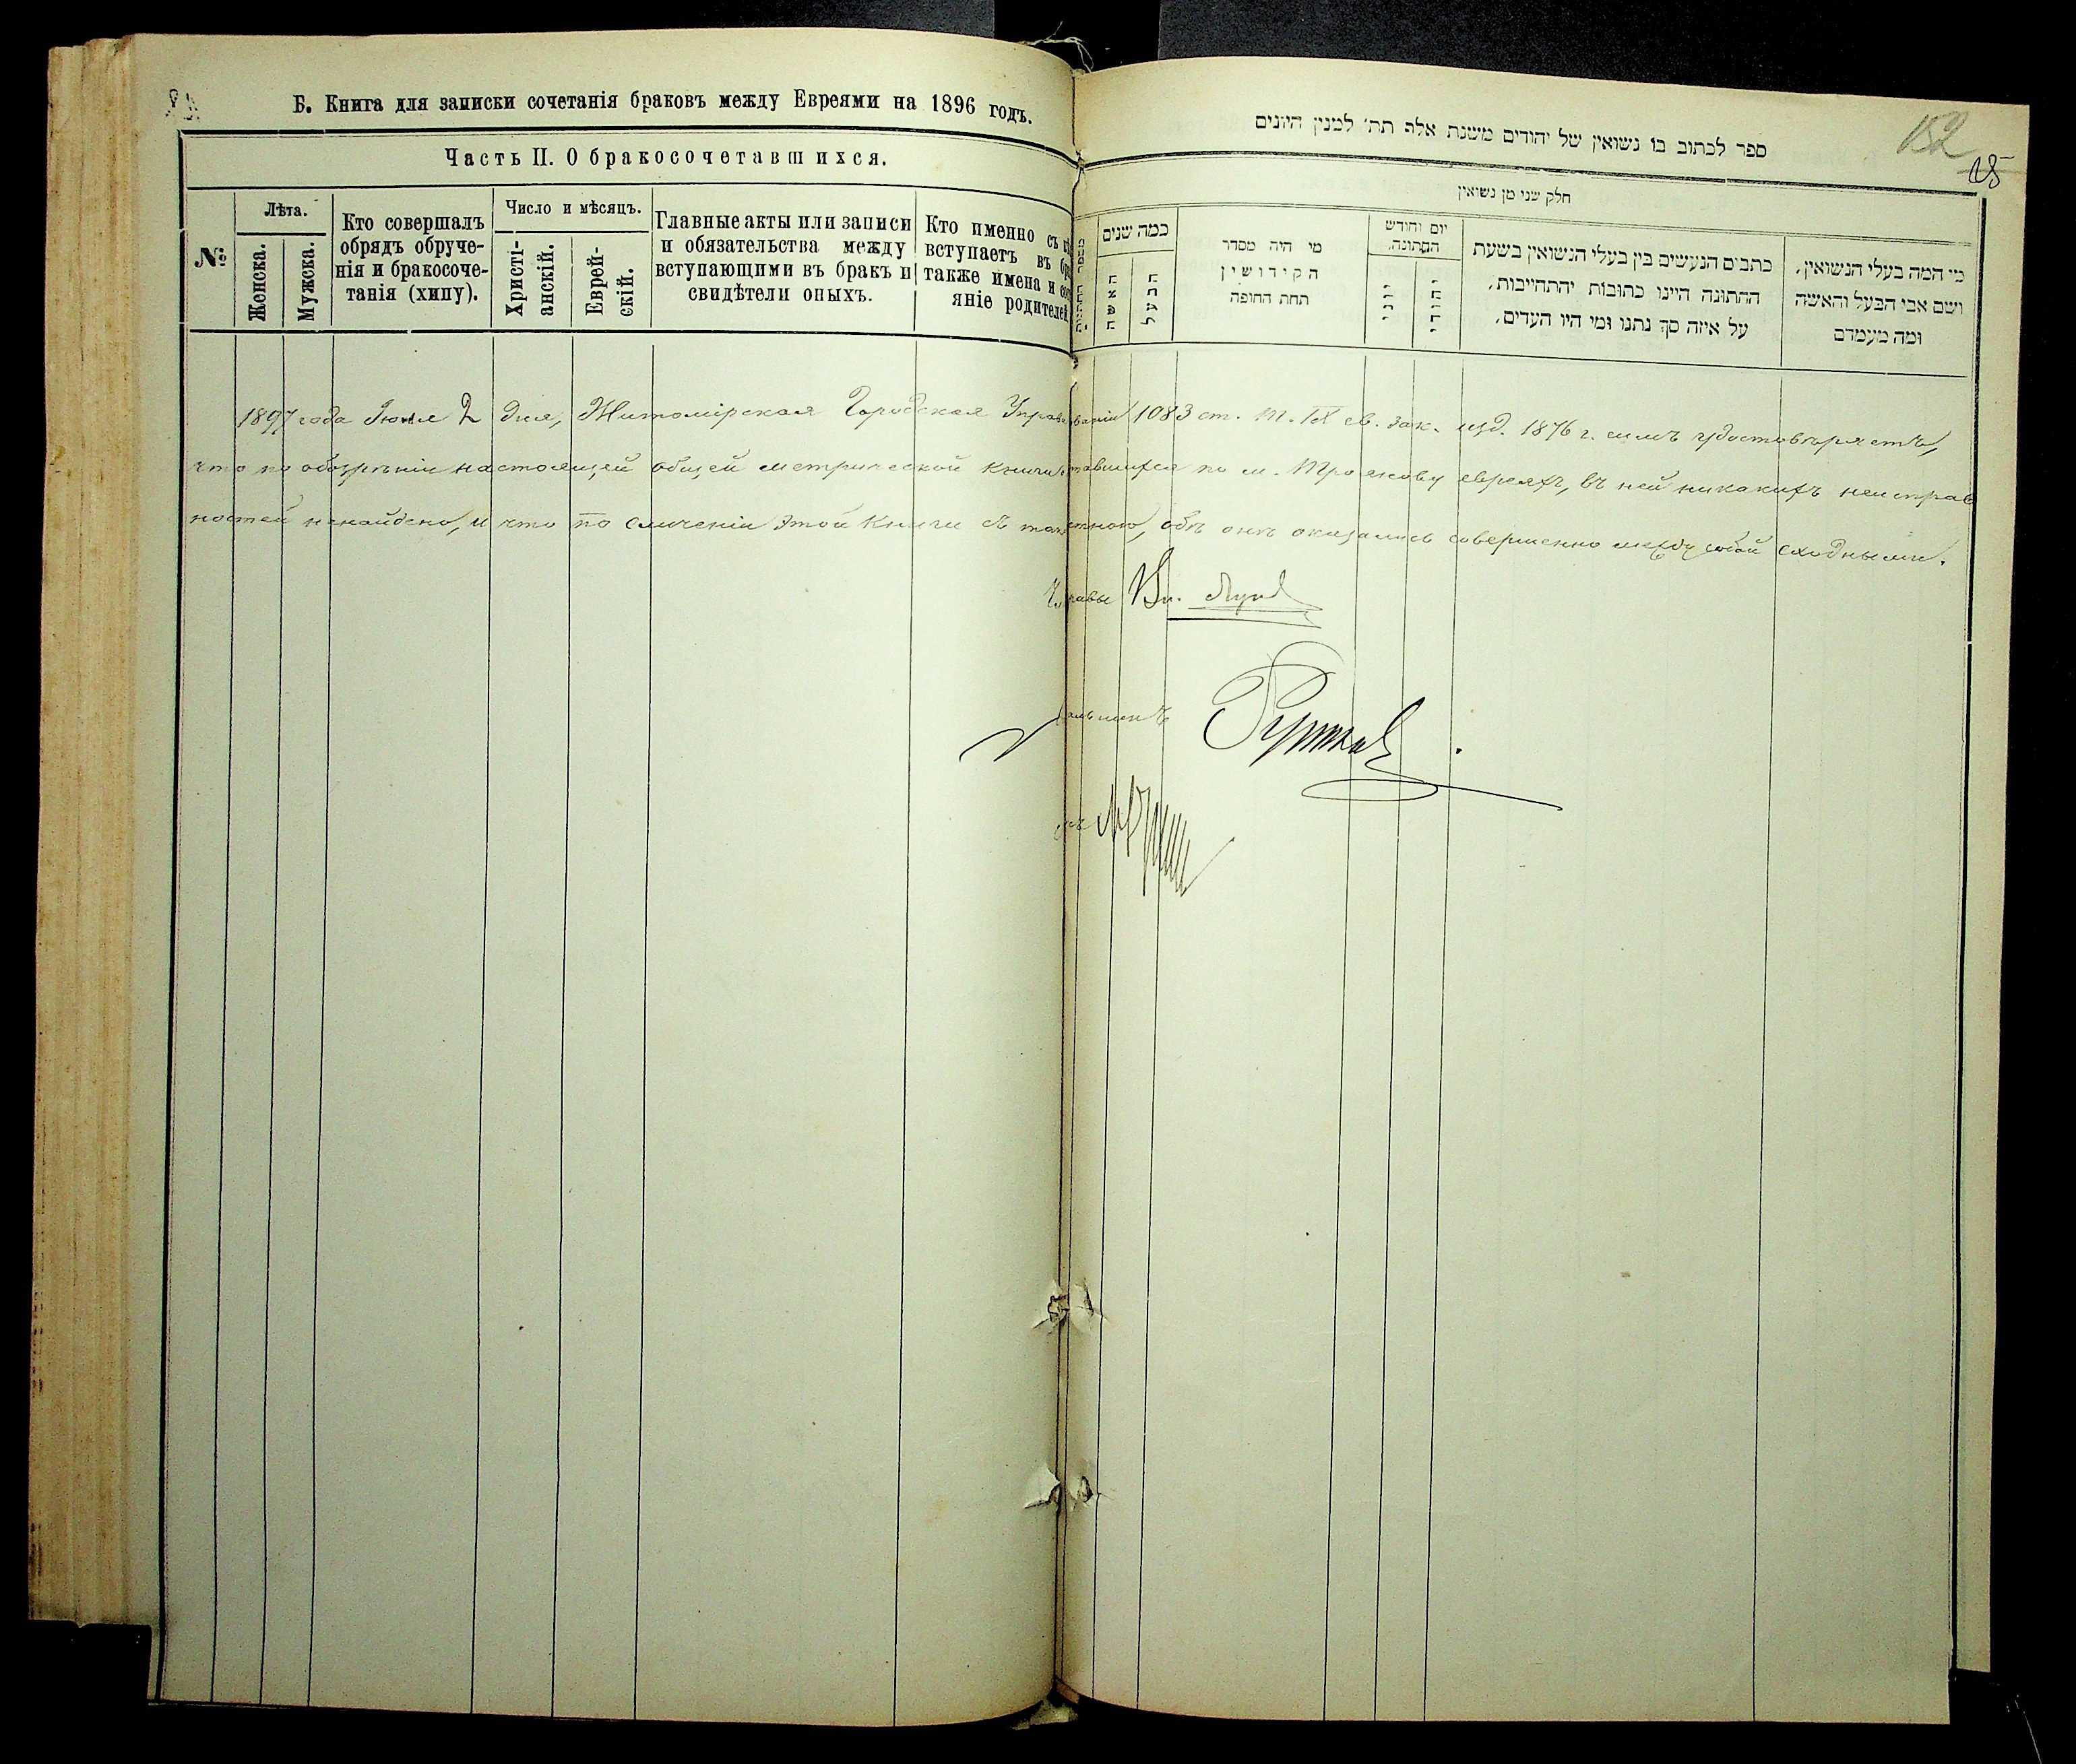 Б. Книга для записки сочетанія браковъ между Евреями на 1896 годъ.
Часть II. О бракосочетавшихся.
№
Лѣта.
Женска.
Мужска.
Кто совершалъ
обрядъ обруче-
нія и бракосоче-
танія (хипу).
Число и мѣсяцъ.
Христі-
анскій.
Еврей-
скій.
Главные акты или записи
и обязательства между
вступающими въ бракъ и
свидѣтели оныхъ.
Кто именно съ
вступаетъ въ
также имена и
яніе родителей
152
25
ספר לכתוב בו נשואין של יהודים משנת אלף תת׳ למנין היונים
חלק שני מן נשואין
כמה שנים
האשה
הבעל
מי היה מסדר
הקידושין
תחת החופה
יום וחודש
החתונה.
יוני
יהודי
כתבים הנעשים בין בעלי הנשואין בשעת
החתונה היינו כתובות יהתחייבות,
על איזה סך נתנו ומי היו העדים,
מי המה בעלי הנשואין,
ושם אבי הבעל והאשה
ומה מעמדם
1897 года Іюля 2 дня, Житомірская Городская Управа 1083 ст. т. IX св. зак. изд. 1876 г. симъ удостовѣряетъ,
что по обозрѣніи настоящей общей метрической книги по м. Троянову евреяхъ, въ ней никакихъ неисправ
ностей ненайдено, и что по сличеніи этой книги съ обѣ онѣ оказались совершенно между собой сходными.